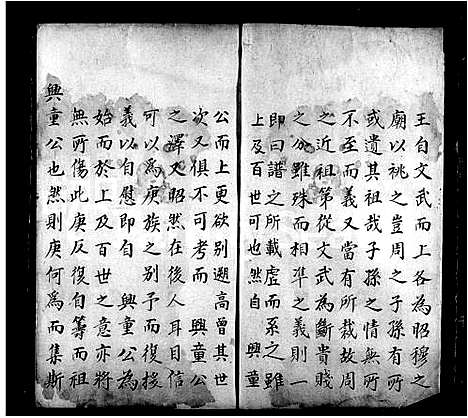 王自文武而上各為昭穆之
廟以祧之豈周之子孫有所
或遺其祖哉子孫之情無所
不至而義又當有所裁故周
之近祖第從文武為斷貴賤
之分雖殊而相準之義則一
即曰譜之所載虛而系之雖
上及百世可也然自 興童
公而上更欲別遡高曾其世
次又俱不可考而 興童公
之澤又昭然在後人耳目信
可以為庚族之別予而復援
義以自慰即自 興童公為
始而於上及百世之意亦將
無所傷此庚反復自籌而於
興童公也然則庚何為而集斯